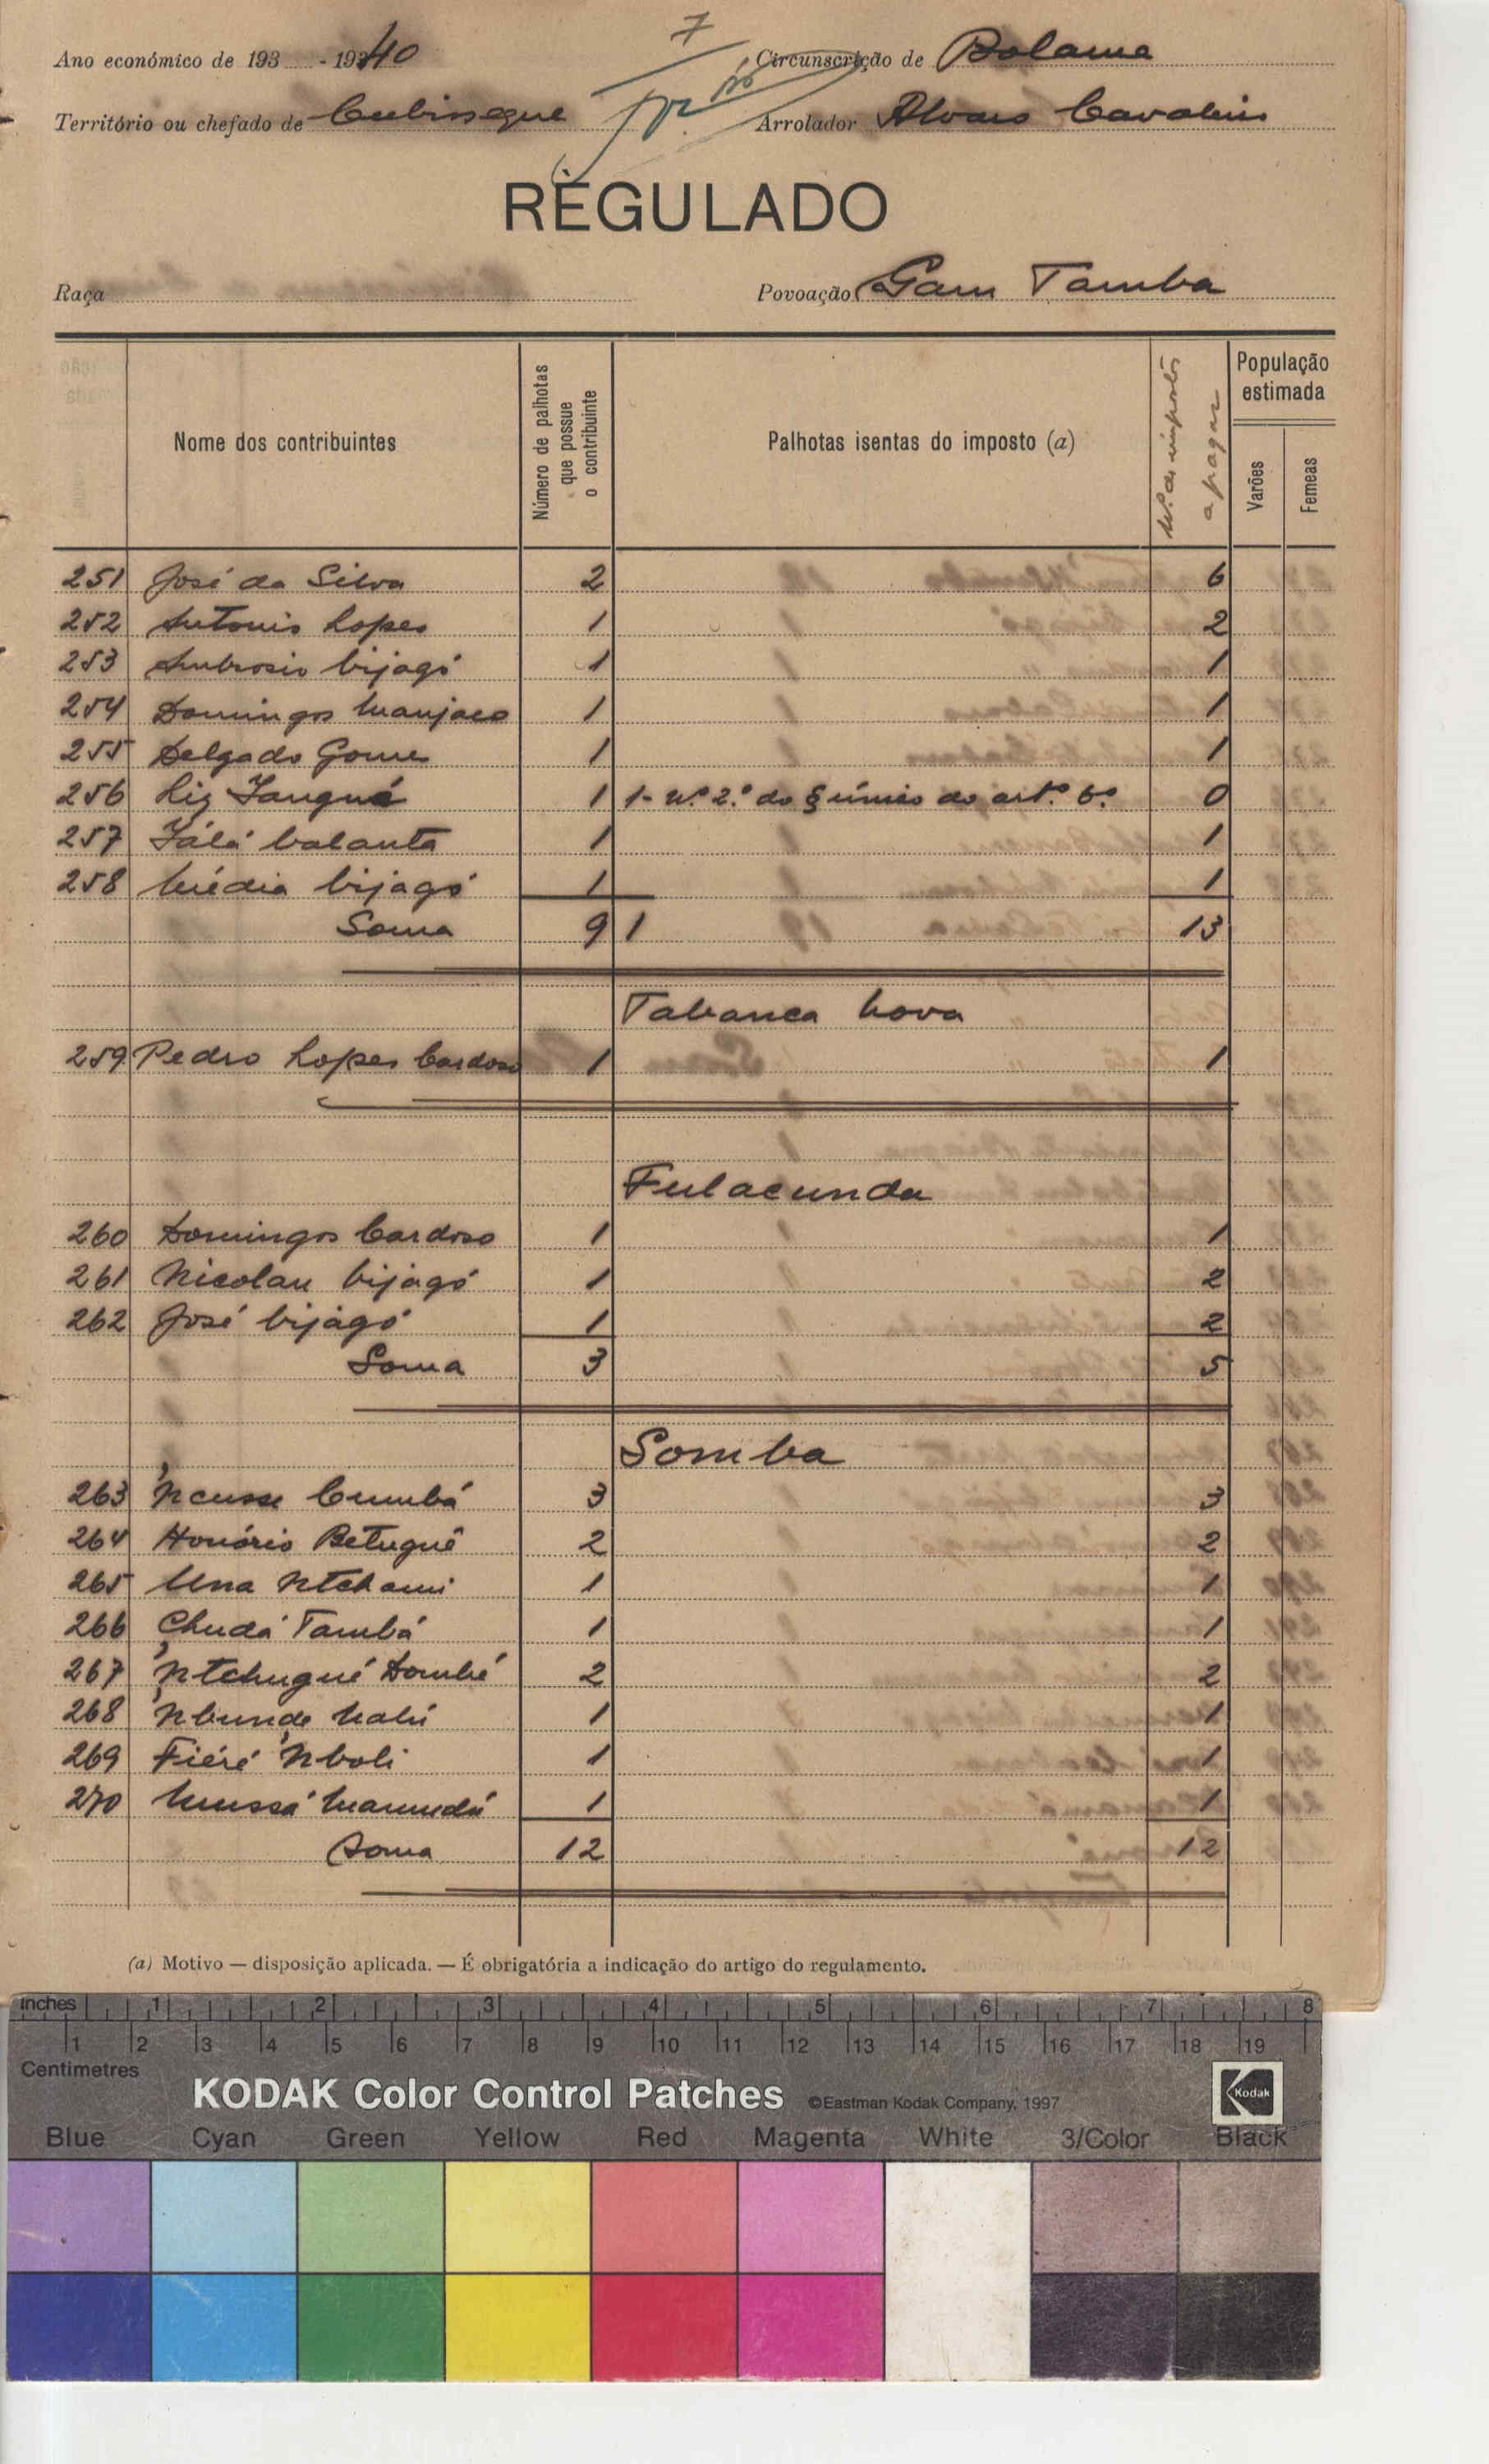 7
Ano económico de 193 - 1940
Circunscrição de Bolama
Território ou chefado de Cubisseque
Arrolador Alvaro
REGULADO
Raça
Povoação Gam Tamba
Nome dos contribuintes
Número de palhotas que possue o contribuinte
Palhotas isentas do imposto (a)
Nº. de impostos a pagar
População estimada
Varões
Femeas
251 José da Silva 2 6
252 Antonio Lopes 1 2
253 Ambrosio bijagó 1 1
254 Domingos Manjaco 1 1
255 Delgado Gomes 1 1
256 1 1- nº 2.º do § único do artº. 6º 0
257 balanta 1 1
258 bijagó 1 1
Soma 9 1 13
Tabanca Nova
259 Pedro Lopes Cardoso 1 1
Fulacunda
260 Domingos Cardoso 1 1
261 Nicolau bijagó 1 2
262 José bijagó 1 2
Soma 3 5
Somba
263 'Ncusse Cumbá 3 3
264 Honório Betugué 2 2
265 Una Ntchami 1 1
266 Chudá Tambá 1 1
267 'Ntchugué Dombé 2 2
268 'Nbunde Nalú 1 1
269 Fiéré 'Nboli 1 1
270 Mussá Mamudú 1 1
Soma 12 12
(a) Motivo — disposição aplicada. — É obrigatória a indicação do artigo do regulamento.
Inches 1 2 3 4 5 6 7 8
1 2 3 4 5 6 7 8 9 10 11 12 13 14 15 16 17 18 19
Centimetres
KODAK Color Control Patches ©Eastman Kodak Company, 1997 Kodak
Blue Cyan Green Yellow Red Magenta White 3/Color Black